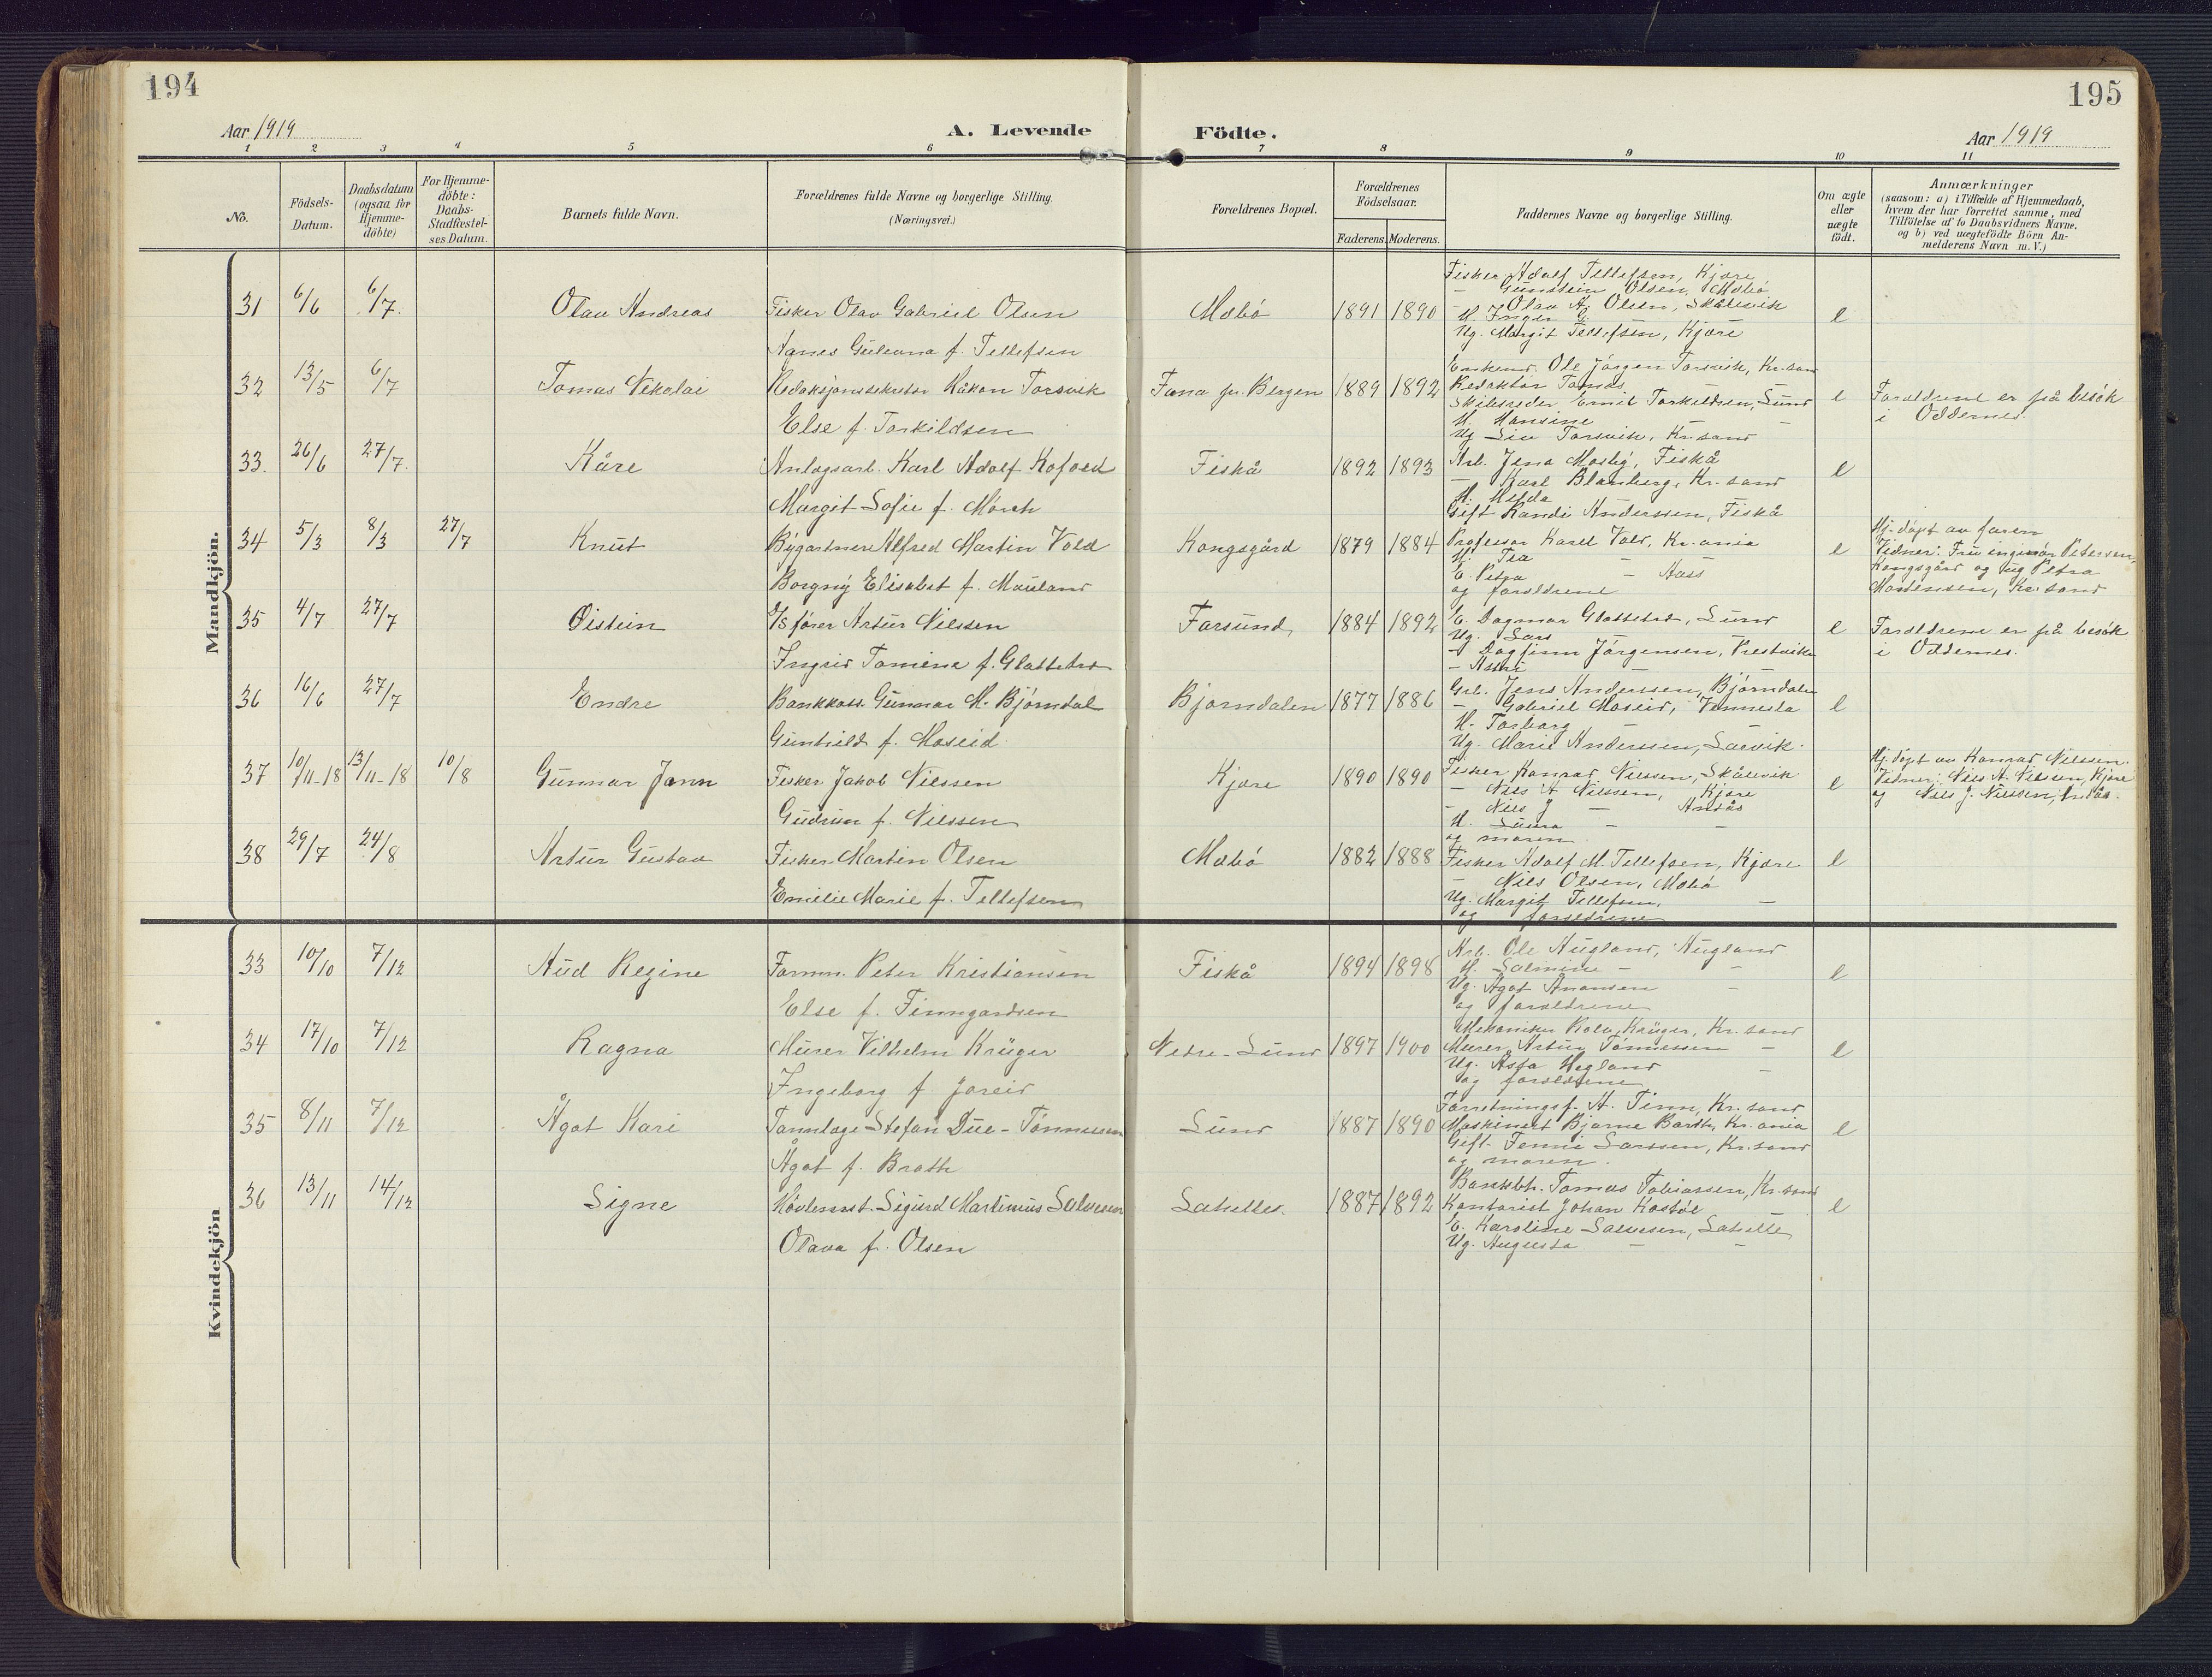 194
195
Aar 1919
A. Levende
Födte.
Aar 1919
1 2 3 4 5 6 7 8 9 10 11
No.
Födsels-
Datum.
Daabsdatum
(ogsaa for
Hjemme-
döbte)
For Hjemme-
döbte:
Daabs-
Stadfæstel-
ses Datum.
Barnets fulde Navn.
Forældrenes fulde Navne og borgerlige Stilling.
(Næringsvei.)
Forældrenes Bopæl.
Forældrenes
Födselsaar.
Faderens. Moderens.
Faddernes Navne og borgerlige Stilling.
Om ægte
eller
uægte
födt.
Anmærkninger
(saasom: a) i Tilfælde af Hjemmedaab,
hvem der har forrettet samme, med
Tilföielse af to Daabsvidners Navne.
og b) ved uægtefödte Börn An-
melderens Navn m. V.)
Mandkjön.
31 6/6 6/7. Olav Andreas
Fisker Olav Gabriel Olsen
Agnes Guleana f. Tellefsen
Mæbö 1891 1890
Fisker Adolf Tellefsen, Kjære
- Gunstein Olsen, Mæbö
- Olav A. Olsen, Skålevik
H. Inger G. - -
Ug. Margit Tellefsen, Kjære
e
32 13/5 6/7 Tomas Nikolai
Redaksjonssekretær Håkon Torsvik
Else f. Torkildsen
Fana pr. Bergen 1889 1892
Enkemd. Ole Jörgen Torsvik, Kr.sand
Redaktör Tomas
Skibsreder Emil Torkildsen, Lund
H. Hansine - -
Ug Liv Torsvik, Kr.sand
e
Foreldrene er på besök
i Oddernes.
33. 26/6 27/7. Kåre
Anlagsarb. Karl Adolf Kofoed
Margit Sofie f. Mörch
Fiskå 1892 1893
Arb. Jens Mosby, Fiskå
- Karl Blomberg, Kr.sand
H. Hilda
Gift Randi Anderssen, Fiskå
e
34 5/3 8/3 27/7 Knut
Bygartner Alfred Martin Vold
Borgny Elisabet f. Mauland
Kongsgård 1879 1884
Professor Karel Vold, Kr.ania
H. Tea -
E. Petra - Aass
og foreldrene
e
Hj.döpt av faren
Vidner: Fru ingeniör Petersen,
Kongsgård og ug Petra
Mortensen, Kr.sand
35 4/7 27/7 Öistein
E/s förer Artur Nilssen
Ingrid Tomine f. Glattetre
Farsund, 1884 1892
E. Dagmar Glattetre, Lund
Ug. Lars - -
- Dagfinn Jörgensen, Prestviken
- Astri - -
e
Foreldrene er på besök
i Oddernes.
36 16/6 27/7 Endre
Bankkass. Gunnar M. Björndal
Gunhild f. Moseid
Björndalen 1877 1886
Grb. Jens Anderssen, Björndalen
- Gabriel Moseid, Vennesla
H. Torborg - -
Ug. Marie Anderssen, Larvik.
e
37 10/11-18 13/11-18 10/8 Gunnar Jonn
Fisker Jakob Nilssen
Gudrun f. Nilssen
Kjære 1890 1890
Fisker Konrad Nilssen, Skålevik
- Nils A Nilssen, Kjære
- Nils J - Andås
H. Laura - -
og moren
e
Hj.döpt av Konrad Nilssen.
Vidner: Nils A. Nilsen, Kjære
og Nils J. Nilssen, Andås.
38 29/7 24/8 Artur Gustav
Fisker Martin Olsen
Emilie Marie f. Tellefsen
Mæbö 1882 1888
Fisker Adolf M. Tellefsen, Kjære
- Nils Olsen, Mæbö
Ug. Margit Tellefsen, -
og foreldrene
e
Kvindekjön
33 10/10 7/12 Aud Regine
Formn. Peter Kristiansen
Else f. Finngardsen
Fiskå 1894 1898
Arb. Ole Augland, Augland
H. Salmine - -
Ug. Agot Anansen -
og foreldrene
e
34 17/10 7/12 Ragna
Murer Vilhelm Krüger
Ingeborg f Joreid
Nedre-Lund 1897 1900
Mekaniker Rolv Krüger, Kr.sand
Murer Artur Tönnessen -
Ug. Asta Hegland -
og foreldrene
e
35 8/11 7/12 Ågot Kari
Tannlæge Stefan Due-Tönnessen
Ågot f. Brath
Lund 1887 1890
Forretningsf. A. Tinn, Kr.sand
Maskinist Bjarne Barth, Kr.ania
Gift. Fenni Larssen, Kr.sand
og moren.
e
36 13/11 14/12 Signe
Hövlemest. Sigurd Martinius Salvesen
Olava f. Olsen
Lahelle. 1887 1892
Bankbh. Tomas Tobiassen, Kr.sand
Kontorist Johan Kostöl
E. Karoline Salvesen, Lahelle
Ug. Augusta - -
e